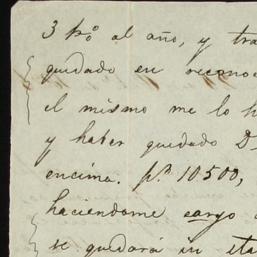 3 p%o al año, y tra
quedado en recono
el mismo me lo h
y haber quedado D
encima. ps. 10500,
haciendome cargo
se quedará in sta